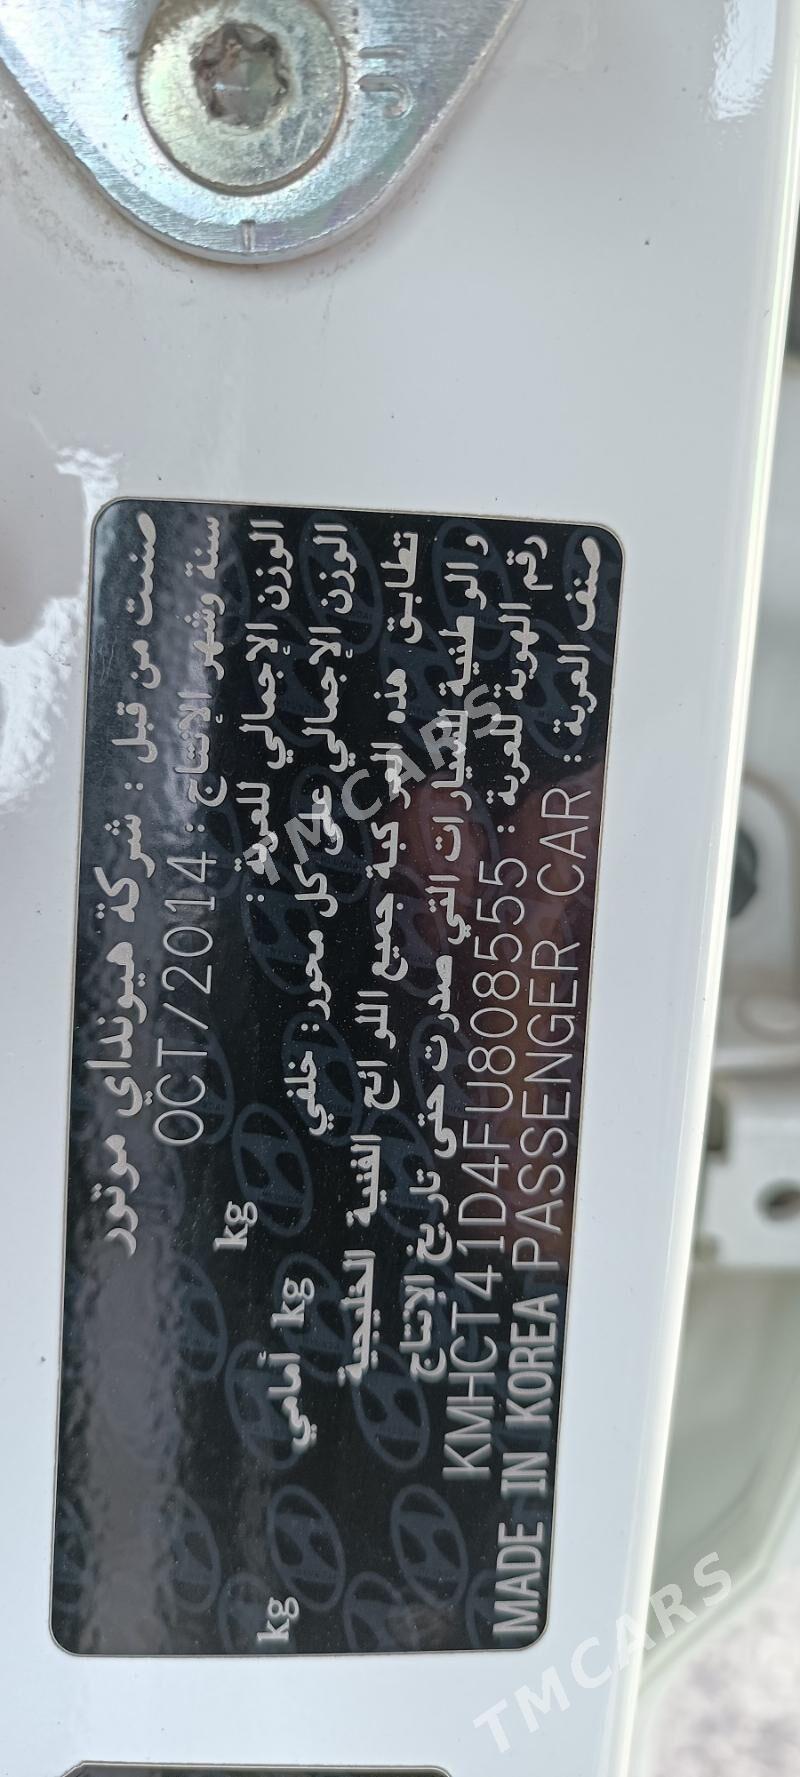 صنعت من قبل : شركة هيونداي موتور
سنة وشهر الإنتاج : OCT/2014
الوزن الإجمالي للعربة : kg
الوزن الإجمالي على كل محور: خلفي kg أمامي kg
تطابق هذه المركبة جميع اللوائح الفنية الخليجية
والوطنية للسيارات التي صدرت حتى تاريخ الإنتاج
رقم الهوية للعربة : KMHCT41D4FU808555
صنف العربة : PASSENGER CAR
MADE IN KOREA
TMCARS
TMCARS